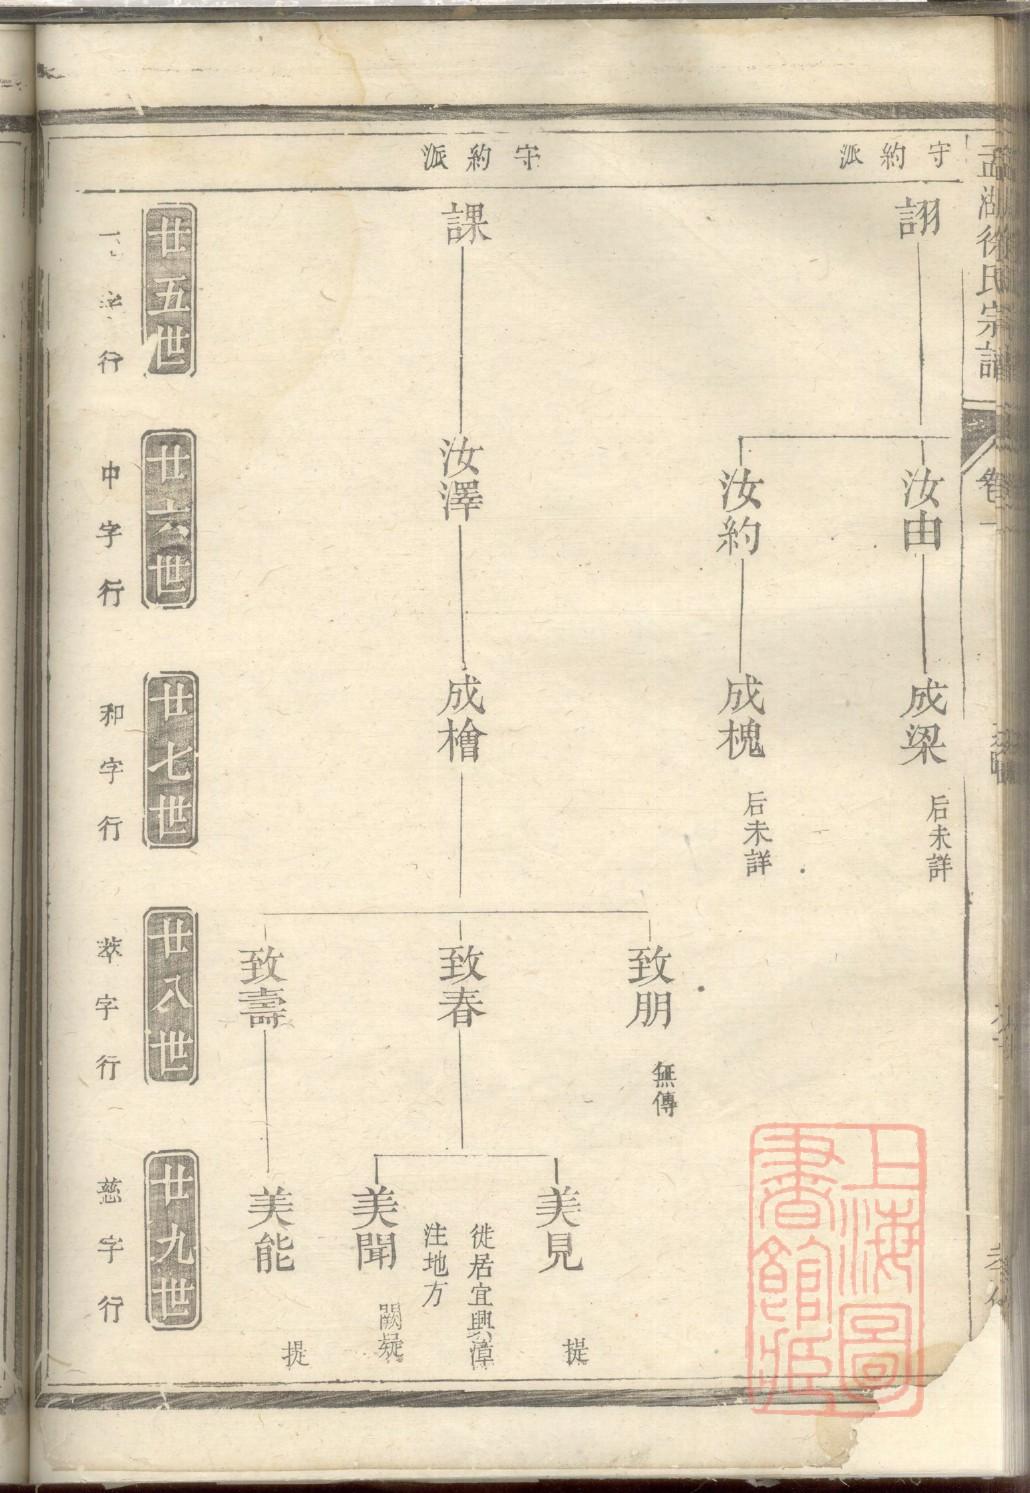 孟湖徐氏宗譜
卷
守約派
詡
汝由
成梁
后未詳
汝約
成槐
后未詳
守約派
課
汝澤
成檜
致朋
無傳
致春
美見
提
徙居宜興漳
注地方
美聞
闕疑
致壽
美能
提
廿五世
字行
廿六世
中字行
廿七世
和字行
廿八世
萃字行
廿九世
慈字行
上海圖
書館藏